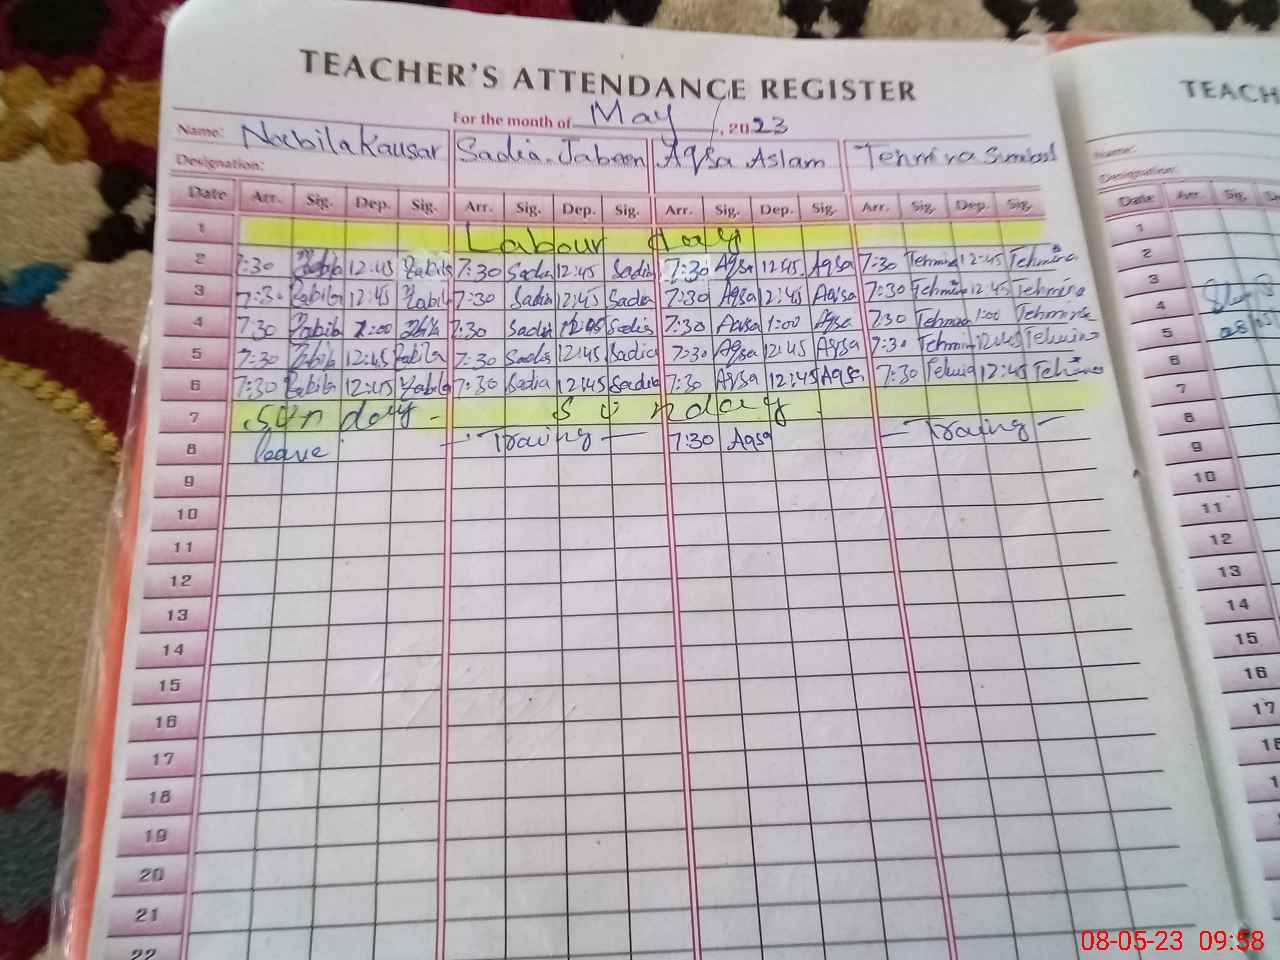 TEACHER'S ATTENDANCE REGISTER TEACH
For the month of May, 2023
Name: Nabila Kausar Sadia Jabeen Aqsa Aslam Tehmina Sumbal Name:
Designation: Designation:
Date Arr. Sig. Dep. Sig. Arr. Sig. Dep. Sig. Arr. Sig. Dep. Sig. Arr. Sig. Dep. Sig. Date Arr. Sig.
1 Labour day 1
2 7:30 Nabila 12:45 Nabila 7:30 Sadia 12:45 Sadia 7:30 Aqsa 12:45 Aqsa 7:30 Tehmina 12:45 Tehmina 2
3 7:30 Nabila 12:45 Nabila 7:30 Sadia 12:45 Sadia 7:30 Aqsa 12:45 Aqsa 7:30 Tehmina 12:45 Tehmina 3
4 7:30 Nabila 1:00 7:30 Sadia Sadia 7:30 Aqsa 1:00 Aqsa 7:30 Tehmina 1:00 Tehmina 4
5 7:30 Nabila 12:45 Nabila 7:30 Sadia 12:45 Sadia 7:30 Aqsa 12:45 Aqsa 7:30 Tehmina 12:45 Tehmina 5
6 7:30 Nabila 12:45 Nabila 7:30 Sadia 12:45 Sadia 7:30 Aqsa 12:45 Aqsa 7:30 12:45 6
7 Sunday - Sunday 7
8 leave - Traing - 7:30 Aqsa - Traing - 8
9 9
10 10
11 11
12 12
13 13
14 14
15 15
16 16
17 17
18
19
20
21
22
08-05-23 09:58